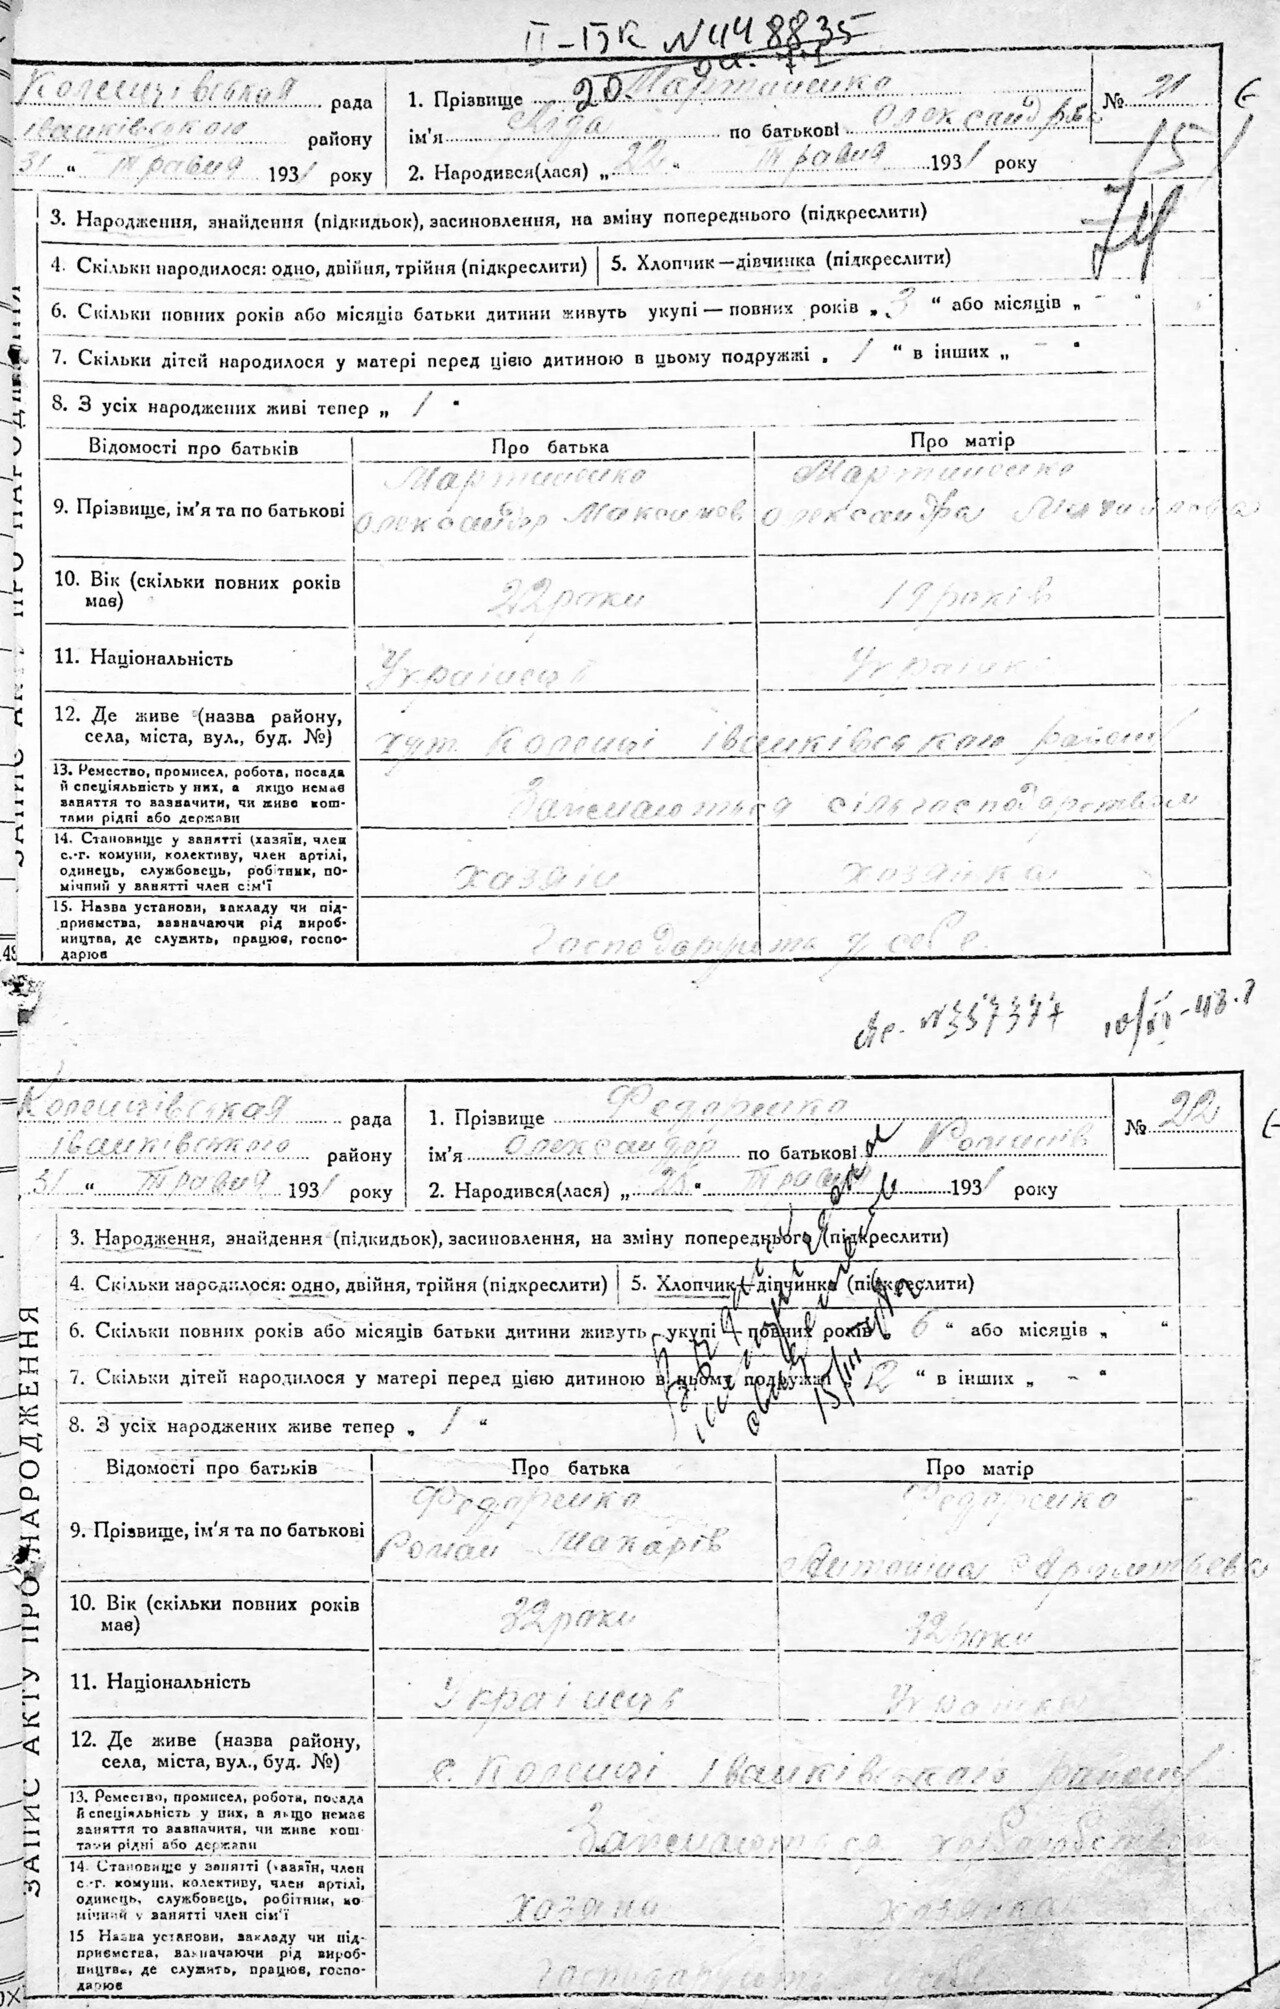 II-БК №448835
20.
Колениківская рада
Іванківського району
31 " Травня 1931 року
1. Прізвище Мартиненко
ім'я Ліда по батькові Олександрівна
2. Народився(лася) „ 22 " Травня 1931 року
№ 21
151
74
3. Народження, знайдення (підкидьок), засиновлення, на зміну попереднього (підкреслити)
4. Скільки народилося: одно, двійня, трійня (підкреслити) 5. Хлопчик—дівчинка (підкреслити)
6. Скільки повних років або місяців батьки дитини живуть укупі — повних років „ 3 " або місяців „ - "
7. Скільки дітей народилося у матері перед цією дитиною в цьому подружжі „ 1 " в інших „ - "
8. З усіх народжених живі тепер „ 1 "
Відомості про батьків Про батька Про матір
9. Прізвище, ім'я та по батькові
Мартиненко Олександер Максимов
Мартиненко Олександра
10. Вік (скільки повних років має) 22 роки 19 років
11. Національність Українець Українк
12. Де живе (назва району, села, міста, вул., буд. №)
хут. Коленці Іванківського району
13. Ремество, промисел, робота, посада й спеціяльність у них, а якщо немає заняття то зазначити, чи живе коштами рідні або держави
Займаються сільгосподарством
14. Становище у занятті (хазяїн, член с.-г. комуни, колективу, член артілі, одинець, службовець, робітник, помічний у занятті член сім'ї
хазяін хозяйка
15. Назва установи, закладу чи підприємства, зазначаючи рід виробництва, де служить, працює, господарює
Господарують у себе.
№357377
ЗАПИС АКТУ ПРО НАРОДЖЕННЯ
рада
Іванківського району
31 " Травня 1931 року
1. Прізвище Федоренко
ім'я Олександор по батькові Романів
2. Народився(лася) „ 25 " Травня 1931 року
№ 22
3. Народження, знайдення (підкидьок), засиновлення, на зміну попереднього (підкреслити)
4. Скільки народилося: одно, двійня, трійня (підкреслити) 5. Хлопчик—дівчинка (підкреслити)
6. Скільки повних років або місяців батьки дитини живуть укупі — повних років „ 6 " або місяців „ "
7. Скільки дітей народилося у матері перед цією дитиною в цьому подружжі „ 2 " в інших „ - "
8. З усіх народжених живе тепер „ 1 "
Відомості про батьків Про батька Про матір
9. Прізвище, ім'я та по батькові
Федоренко Роман Макарів
Федоренко Антоніна
10. Вік (скільки повних років має) 32 роки 32 роки
11. Національність Українець Українка
12. Де живе (назва району, села, міста, вул., буд. №)
с. Коленці Іванківського району
13. Ремество, промисел, робота, посада й спеціяльність у них, а якщо немає заняття то зазначити, чи живе коштами рідні або держави
Займаються
14. Становище у занятті (хазяїн, член с.-г. комуни, колективу, член артілі, одинець, службовець, робітник, помічний у занятті член сім'ї
хозяин хозяйка
15 Назва установи, закладу чи підприємства, зазначаючи рід виробництва, де служить, працює, господарює
Господарують у себе
ЗАПИС АКТУ ПРО НАРОДЖЕННЯ